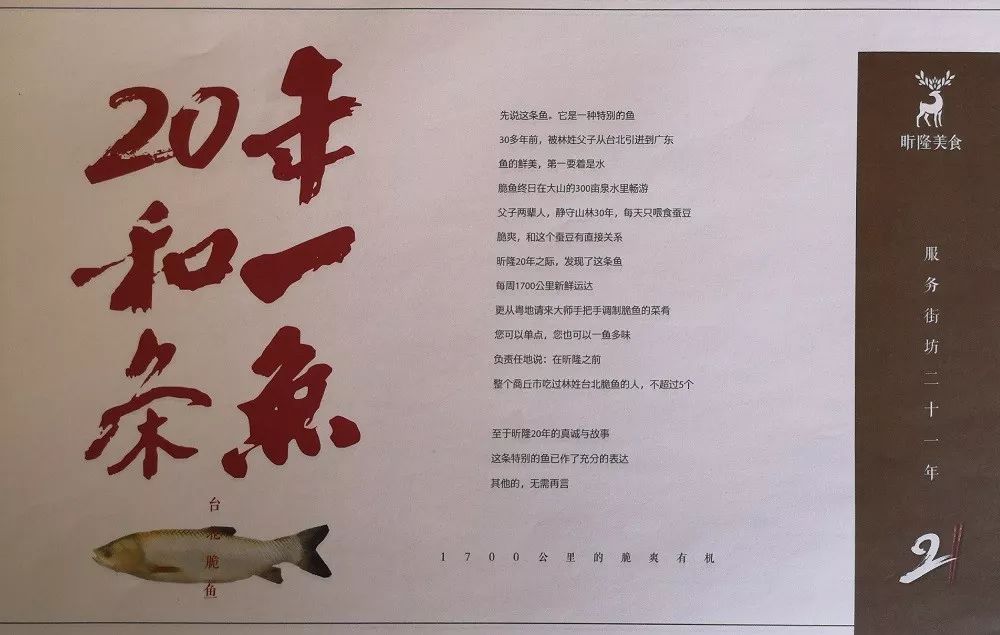 20年
和一
条鱼
台北脆鱼
先说这条鱼。它是一种特别的鱼
30多年前，被林姓父子从台北引进到广东
鱼的鲜美，第一要着是水
脆鱼终日在大山的300亩泉水里畅游
父子两辈人，静守山林30年，每天只喂食蚕豆
脆爽，和这个蚕豆有直接关系
昕隆20年之际，发现了这条鱼
每周1700公里新鲜运达
更从粤地请来大师手把手调制脆鱼的菜肴
您可以单点，您也可以一鱼多味
负责任地说：在昕隆之前
整个商丘市吃过林姓台北脆鱼的人，不超过5个
至于昕隆20年的真诚与故事
这条特别的鱼已作了充分的表达
其他的，无需再言
1700公里的脆爽有机
昕隆美食
服务街坊二十一年
21